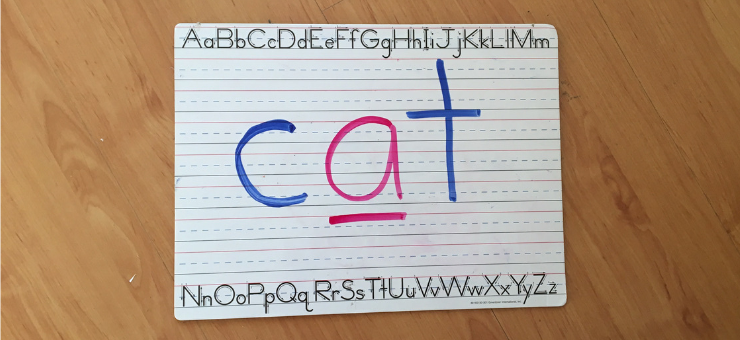 AaBbCcDdEeFfGgHhIiJjKkLlMm
cat
NnOoPpQqRrSsTtUuVvWwXxYyZz